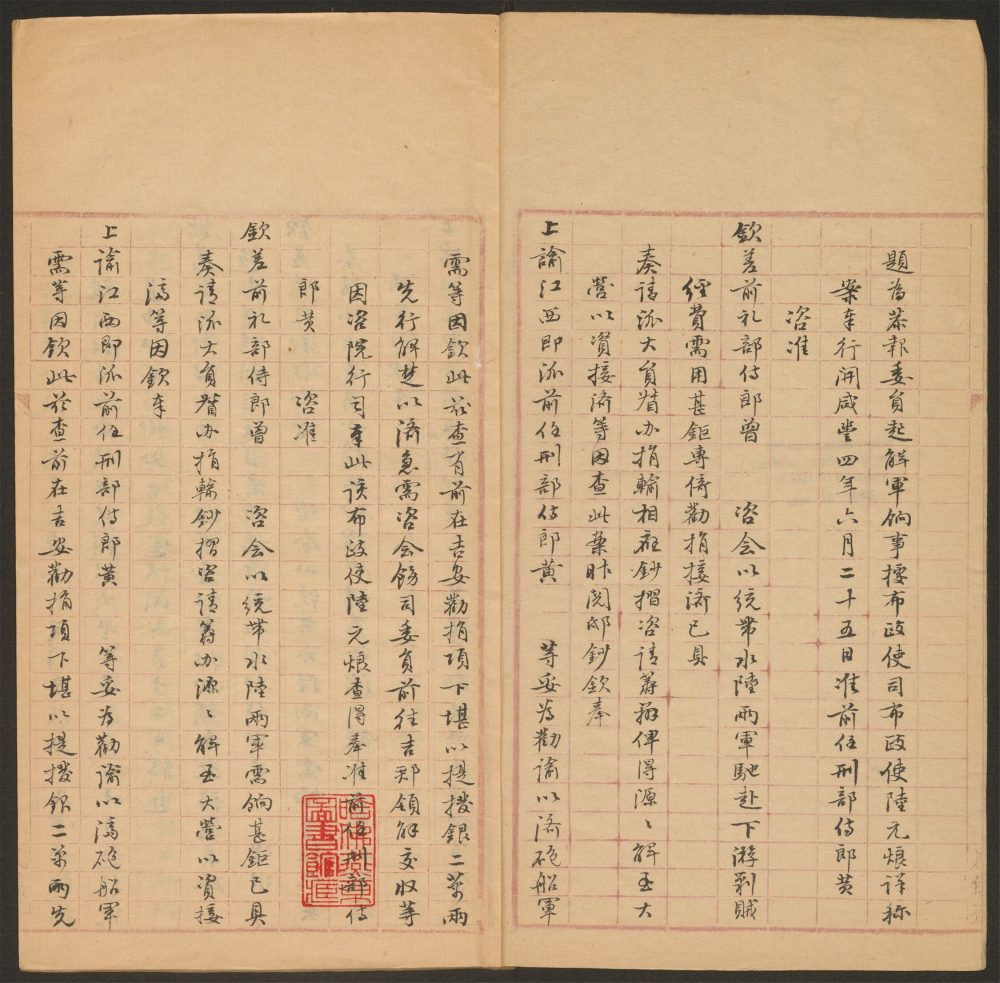 題為恭報委員起解軍餉事據布政使司布政使陸元烺詳称
案奉行開咸豐四年六月二十五日准前任刑部侍郎黄
咨准
欽差前礼部侍郎曾　咨会以統帯水陸兩軍馳赴下游剿賊
經費需用甚鉅專倚勸捐接濟已具
奏請派大員督办捐輸相應鈔摺咨請籌辦俾得源〻解至大
營以資接濟等因查此案昨閲邸鈔欽奉
上諭江西即派前任刑部侍郎黄　等妥為勸諭以濟砲船軍
需等因欽此茲查有前在吉安勸捐項下堪以提撥銀二萬兩
先行解楚以済急需咨会飭司委員前往吉郡領解交收等
因咨院行司奉此該布政使陸元烺查得奉准前任刑部侍
郎黄　咨准
欽差前礼部侍郎曾　咨会以統带水陸兩軍需餉甚鉅已具
奏請派大員督办捐輸鈔摺咨請籌办源〻解至大營以資接
濟等因欽奉
上諭江西即派前任刑部侍郎黄　等妥為勸諭以濟砲船軍
需等因欽此茲查前在吉安勸捐項下堪以提撥銀二萬兩先
哈佛燕京圖書館藏